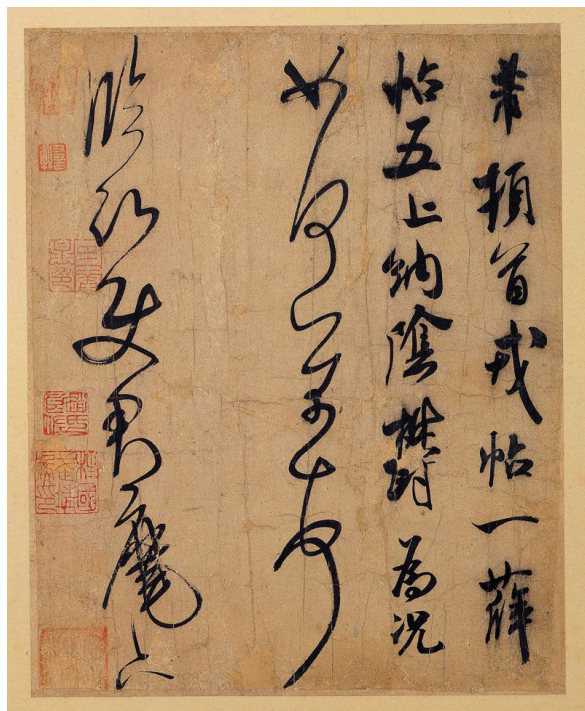 芾頓首戎帖一薛
帖五上納陰欝為況
如何芾頓首
臨沂使君麾下